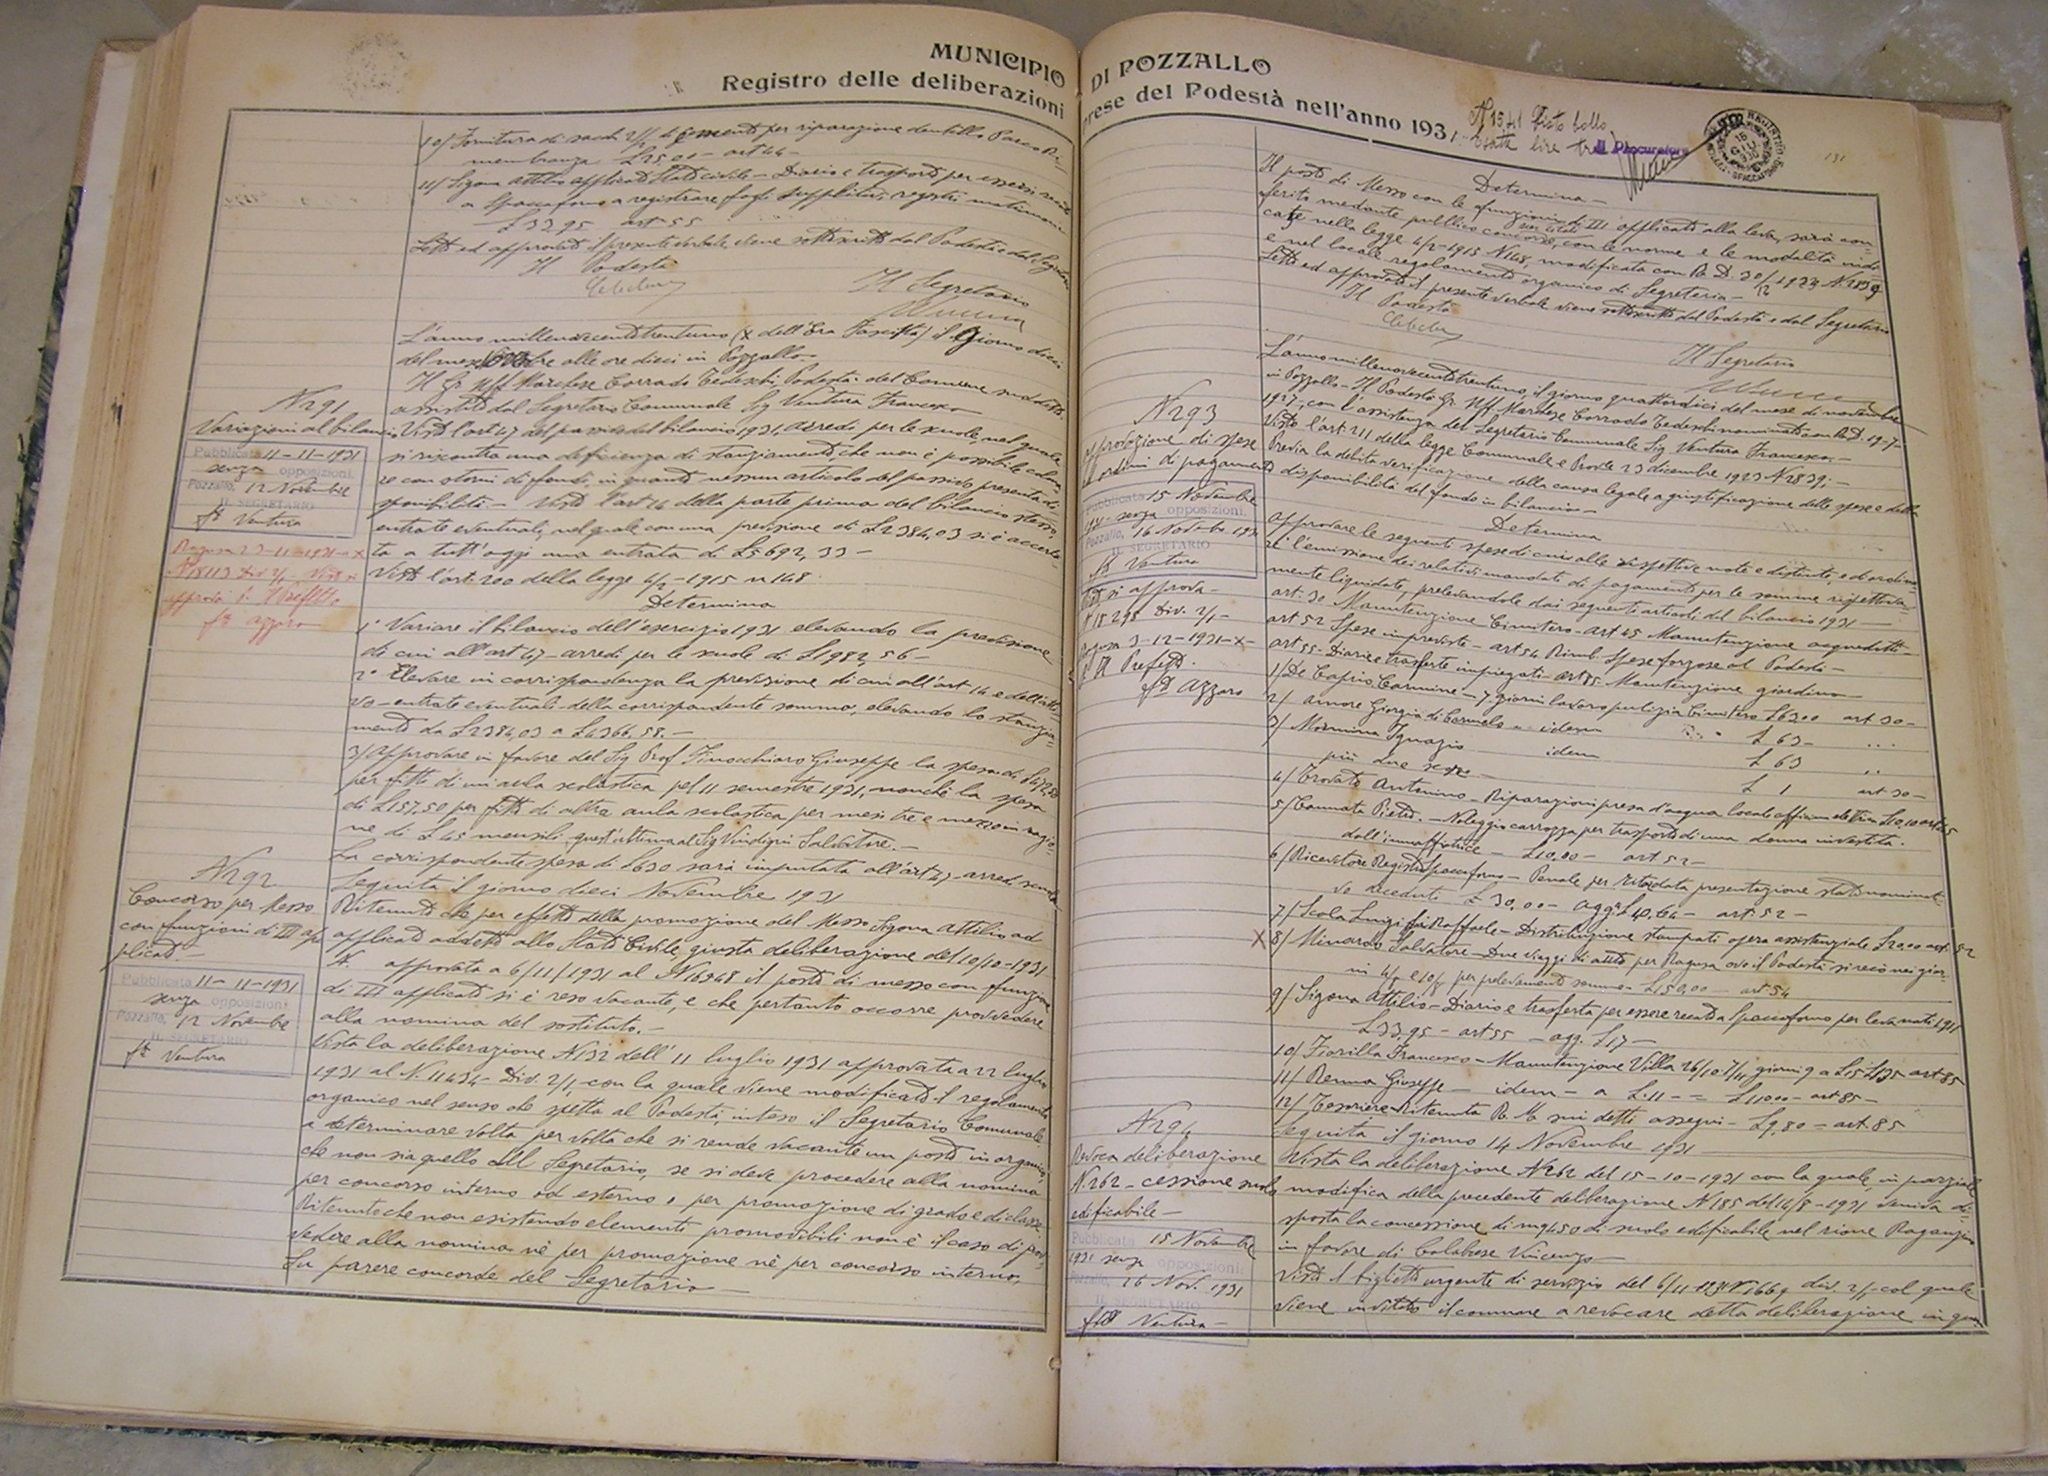 MUNICIPIO DI POZZALLO
Registro delle deliberazioni prese del Podestà nell'anno 1931
10/ Fornitura di sacchi 2/2 di cemento per riparazione cancello Parco Ri-
membranza £ 25,00 - art 44 -
11/ Sigona Attilio applicato Stato civile - Diario e trasporto per essersi recato
a Spaccaforno a registrare fogli suppletivi, registri matrimoni
£ 33,95 art 55
Letto ed approvato il presente verbale viene sottoscritto dal Podestà e dal Segretario
Il Podestà
Il Segretario
L'anno millenovecentotrentuno (X dell'Era Fascista) il giorno dieci
del mese Novembre alle ore dieci in Pozzallo -
Il Gr. Uff. Marchese Corrado Tedeschi, Podestà del Comune suddetto,
assistito dal Segretario Comunale Sig Ventura Francesco
N 291
Variazioni al bilancio
Pubblicata 11-11-1931
senza opposizioni.
Pozzallo, 12 Novembre
IL SEGRETARIO
fto Ventura
Ragusa 23-11-1931-X
N 18113 Div 2/1 - Visto si
approva p. Il Prefetto
fto Azzaro
Visto l'art 47 del passivo del bilancio 1931, arredi per le scuole, nel quale
si riscontra una deficienza di stanziamento, che non è possibile colma-
re con storni di fondi, in quanto nessun articolo del passivo presenta di-
sponibilità - Visto l'art 14 della parte prima del bilancio stesso,
entrate eventuali, nel quale con una previsione di £ 2384,03 si è accerta-
ta a tutt'oggi una entrata di £ 5692,33 -
Visto l'art. 200 della legge 4/2-1915 n 148.
Determina
1° Variare il bilancio dell'esercizio 1931 elevando la previsione
di cui all'art 47 - arredi per le scuole di £ 1982,56 -
2° Elevare in corrispondenza la previsione di cui all'art 14 dell'atti-
vo - entrate eventuali - della corrispondente somma, elevando lo stanzia-
mento da £ 2384,03 a £ 4366,58. -
3/ Approvare in favore del Sig Prof Finocchiaro Giuseppe la spesa di
per fitto di un'aula scolastica pel II semestre 1931, nonchè la spesa
di £ 157,50 per fitto di altra aula scolastica per mesi tre e mezzo in ragio-
ne di £ 45 mensili, quest'ultima al Sig Vindigni Salvatore. -
La corrispondente spesa di £ 630 sarà imputata all'art 47, arredi scuole
N 292
Concorso per Messo
con funzioni di III ap-
plicato -
Pubblicata 11-11-1931
senza opposizioni
Pozzallo, 12 Novembre
IL SEGRETARIO
fto Ventura
Seguita il giorno dieci Novembre 1931
Ritenuto che per effetto della promozione del Messo Sigona Attilio ad
applicato addetto allo Stato Civile, giusta deliberazione del 10/10-1931
N. approvata a 6/11/1931 al N 16948 il posto di messo con funzioni
di III applicato si è reso vacante, e che pertanto occorre provvedere
alla nomina del sostituto. -
Vista la deliberazione N 132 dell'11 luglio 1931 approvata a 22 luglio
1931 al N. 11434 - Div. 2/1, con la quale viene modificato il regolamento
organico nel senso che spetta al Podestà, inteso il Segretario Comunale
a determinare volta per volta che si rende vacante un posto in organico,
che non sia quello del Segretario, se si deve procedere alla nomina
per concorso interno od esterno o per promozione di grado e di classe
Ritenuto che non esistendo elementi promovibili non è il caso di prov-
vedere alla nomina nè per promozione nè per concorso interno.
Su parere concorde del Segretario -
N 1341 Visto bollo
Esatte lire tre
Il Procuratore
131
Determina -
Il posto di Messo con le funzioni di III applicato alla leva, sarà con-
ferito mediante pubblico concorso, per titoli con le norme e le modalità indi-
cate nella legge 4/2-1915 N 148, modificata con R. D. 30/12 1923 N 2839
e nel locale regolamento organico di Segreteria -
Letto ed approvato il presente verbale viene sottoscritto dal Podestà e dal Segretario
Il Podestà
Il Segretario
L'anno millenovecentotrentuno, il giorno quattordici del mese di novembre
in Pozzallo - Il Podestà Gr. Uff. Marchese Corrado Tedeschi nominato con R. D. 19-7-
1927, con l'assistenza del Segretario Comunale Sig Ventura Francesco. -
N 293
Approvazione di spese
ed ordini di pagamento
Pubblicata 15 Novembre
1931 senza opposizioni.
Pozzallo, 16 Novembre 1931
IL SEGRETARIO
fto Ventura
Visto si approva -
N 18298 Div. 2/1 -
Ragusa 3-12-1931-X-
p. Il Prefetto.
fto Azzaro
Visto l'art. 211 della legge Comunale e Prov.le 23 dicembre 1923 N 2839: -
Previa la debita verificazione della causa legale a giustificazione delle spese e della
disponibilità del fondo in bilancio -
Determina
Approvare le seguenti spese di cui alle rispettive note e distinte, ed ordina-
re l'emissione dei relativi mandati di pagamento per le somme rispettiva-
mente liquidate, prelevandole dai seguenti articoli del bilancio 1931 -
art. 30 Manutenzione Cimitero - art 45 Manutenzione acquedotti -
art 52 Spese impreviste - art 54 Rimb. Spese forzose al Podestà -
art 55 - Diarie e trasferte impiegati - art 85 Manutenzione giardino -
1/ De Caprio Carmine - 7 giorni lavoro pulizia Cimitero £ 63,00 art 30 -
2/ Amore Giorgio di Carmelo - idem £ 63 -
3/ Mormina Ignazio idem £ 63
più due scope - £ 1 art 30 -
4/ Trovato Antonino - Riparazioni presa d'acqua locale officina elettrica £ 10,10 art 45
5/ Cannata Pietro. - Noleggio carrozza per trasporto di una donna investita
dall'innaffiatrice - £ 10,00 - art 52 -
6/ Ricevitore Registro Spaccaforno - Penale per ritardata presentazione stato nominati-
vo deceduti £ 30,00 - agg. £ 40,64 - art. 52 -
7/ Scola Luigi fu Raffaele - Distribuzione stampati opera assistenziale £ 20,00 art 52
X 8/ Minardo Salvatore - Due viaggi di auto per Ragusa ove il Podestà si recò nei gior-
ni 4/ e 10/ per prelevamenti somme - £ 150,00 - art 54
9/ Sigona Attilio - Diario e trasferta per essere recato a Spaccaforno per leva nati 1911
£ 33,95 - art 55 - agg. £ 17 -
10/ Fiorilla Francesco - Manutenzione Villa 26/10 7/11, giorni 9 a £ 15 £ 135 art 85
11/ Renna Giuseppe - idem - a £. 11 - = £ 110,00 - art 85 -
12/ Tesoriere - Ritenuta R. M. sui detti assegni - £ 9,80 - art. 85
N 294
Revoca deliberazione
N. 262 - cessione suolo
edificabile -
Pubblicata 15 Novembre
1931 senza opposizioni.
Pozzallo, 16 Nov. 1931
IL SEGRETARIO
fto Ventura -
Seguita il giorno 14 Novembre 1931
Vista la deliberazione N 262 del 15-10-1931 con la quale, in parziale
modifica della precedente deliberazione N 185 del 14/8-1931 veniva di-
sposta la concessione di mq 450 di suolo edificabile nel rione Raganzino
in favore di Calabrese Vincenzo
Visto il biglietto urgente di servizio del 6/11-1931 N 1669 div. 2/1 col quale
viene invitato il comune a revocare detta deliberazione in quan-